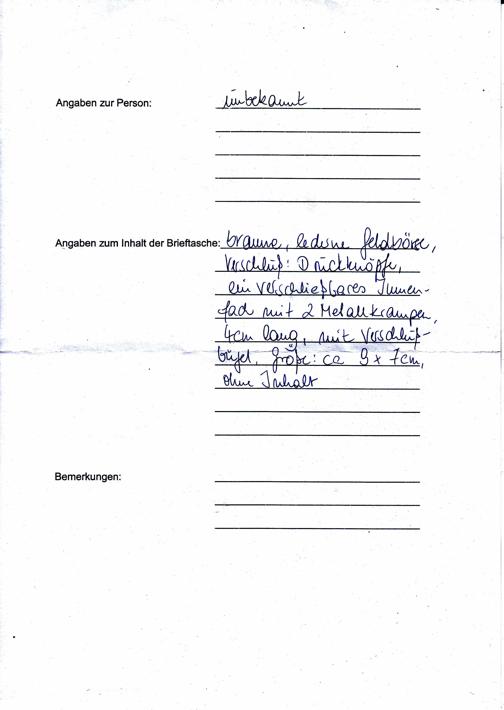 Angaben zur Person: unbekannt
Angaben zum Inhalt der Brieftasche: braune, lederne Geldbörse,
Verschluß: Druckknöpfe,
ein verschließbares Innen-
fach mit 2 Metallkrampen,
4cm lang, mit Verschluß-
bügel. Größe: ca 9 x 7cm,
ohne Inhalt
Bemerkungen: